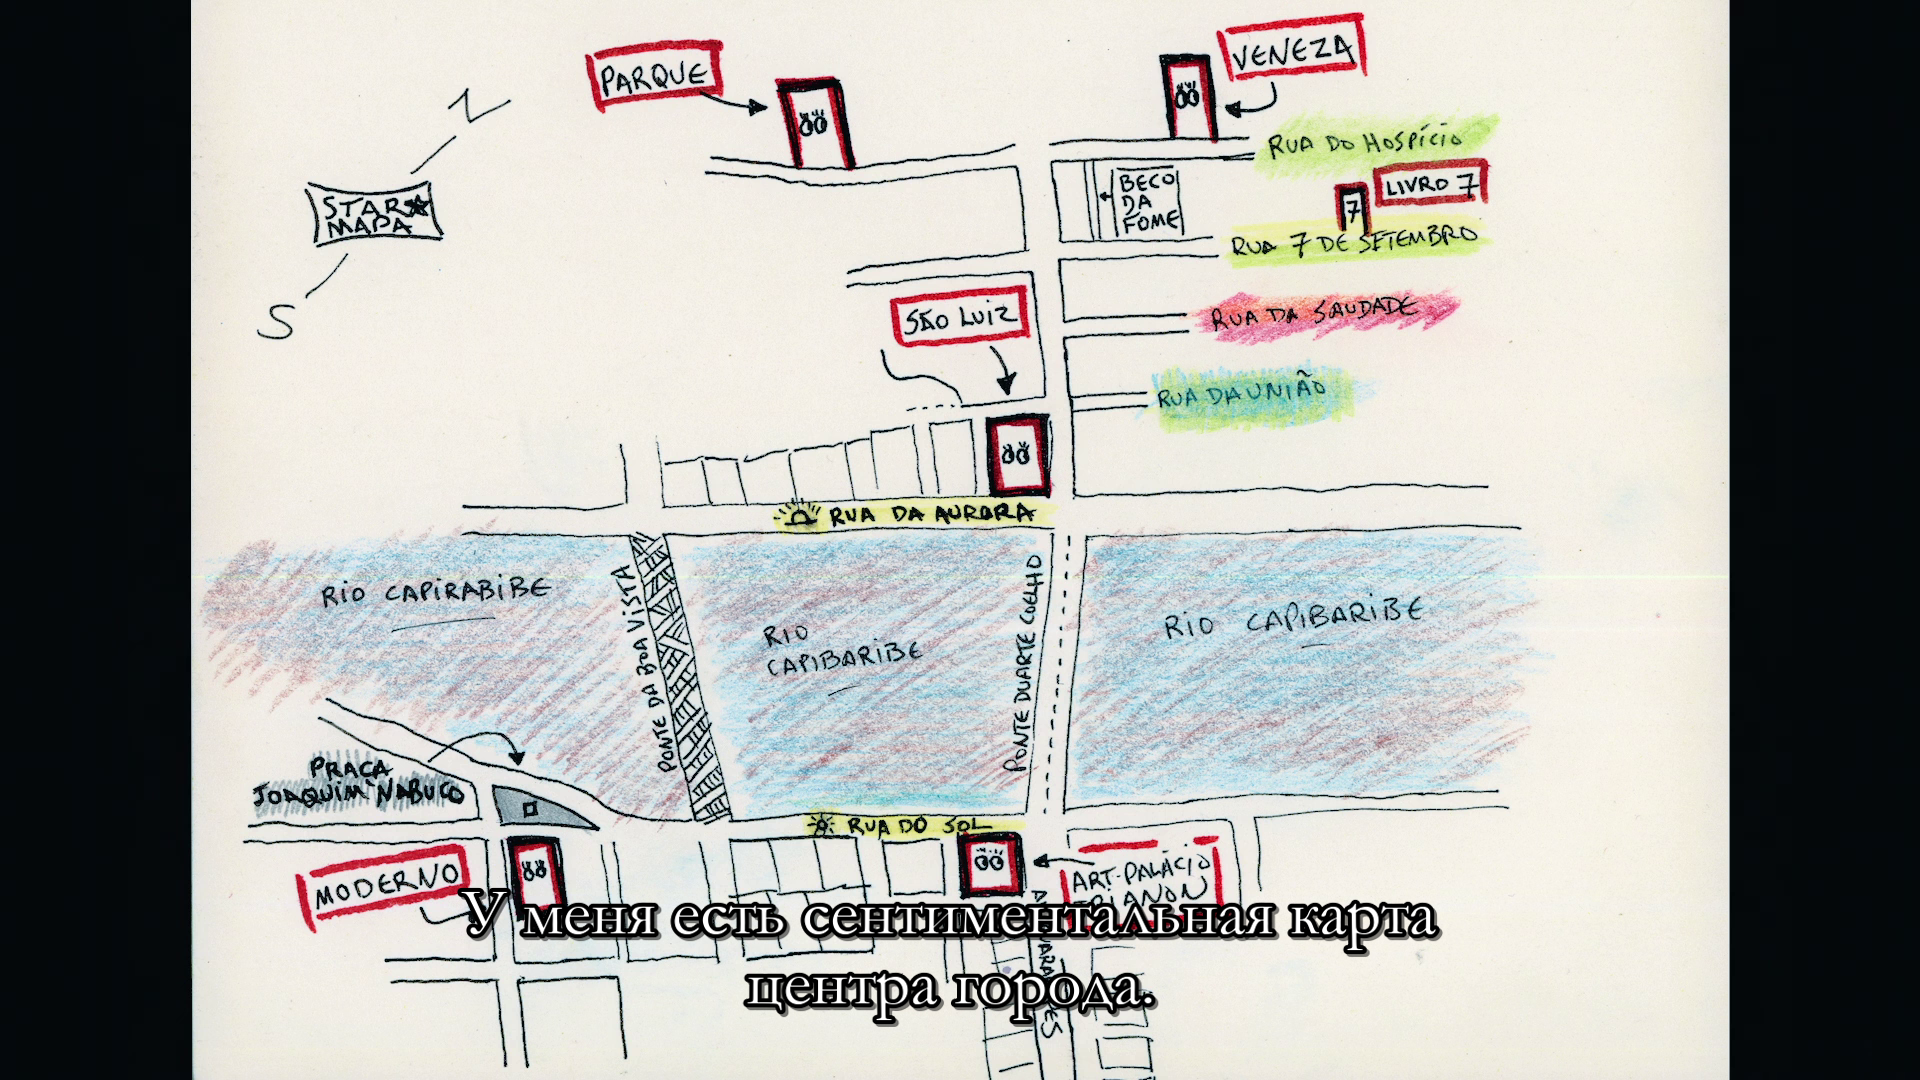 PARQUE
VENEZA
N
RUA DO HOSPÍCIO
STAR
MAPA
BECO
DA
FOME
LIVRO 7
7
RUA 7 DE SETEMBRO
S
SÃO LUIZ
RUA DA SAUDADE
RUA DA UNIÃO
RUA DA AURORA
RIO CAPIRABIBE
PONTE DA BOA VISTA
RIO
CAPIBARIBE
PONTE DUARTE COELHO
RIO CAPIBARIBE
PRAÇA
JOAQUIM NABUCO
RUA DO SOL
MODERNO
ART-PALÁCIO
TRIANON
У меня есть сентиментальная карта
центра города.